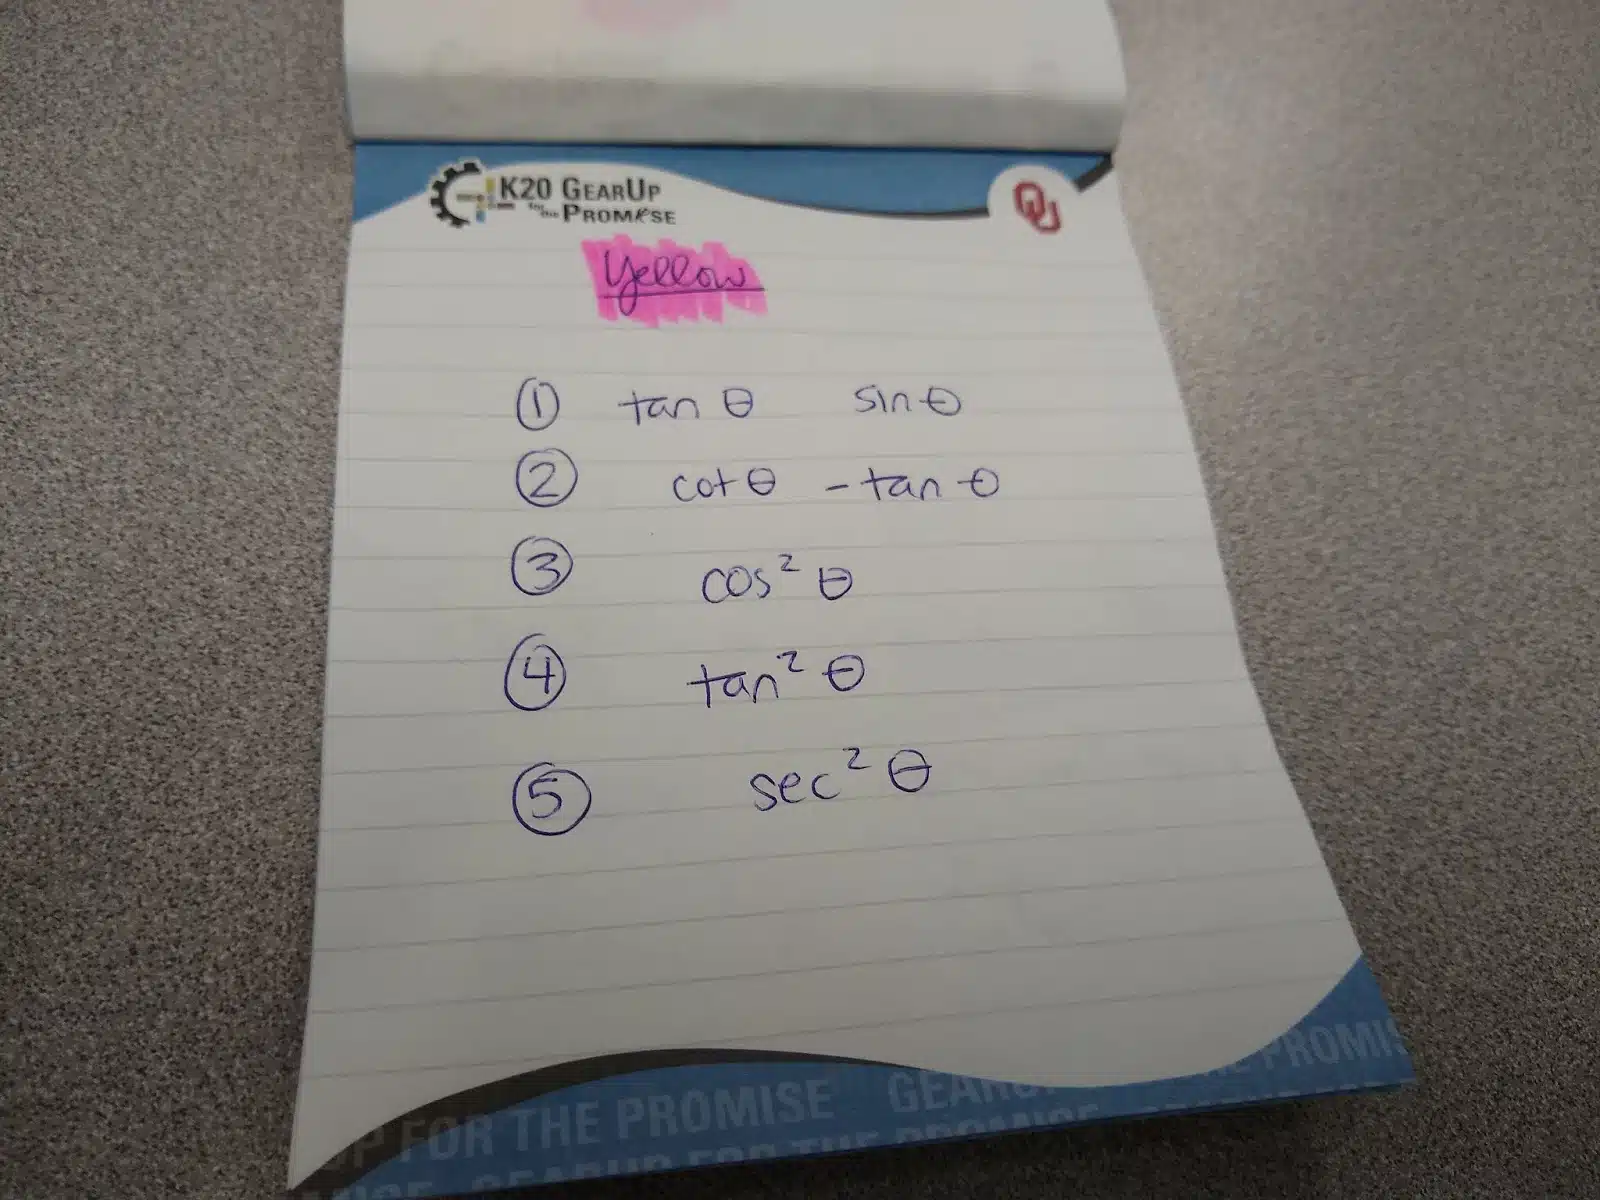 K20 GEARUP
for the PROMISE
OU
Yellow
① tan θ sin θ
② cot θ - tan θ
③ cos² θ
④ tan² θ
⑤ sec² θ
UP FOR THE PROMISE GEARU PROMIS